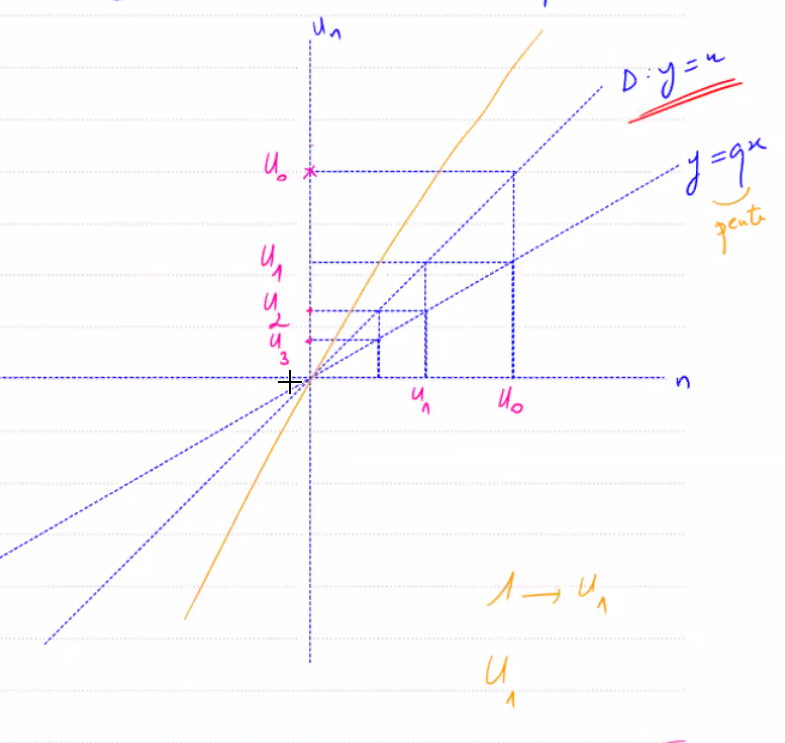 uₙ
D : y = x
y = qx
pente
U₀
U₁
U₂
U₃
n
u₁
u₀
1 → u₁
U₁